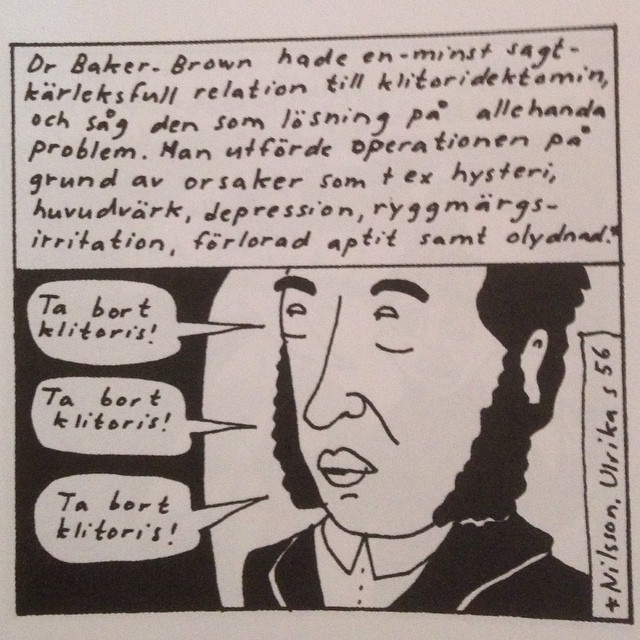 Dr Baker-Brown hade en-minst sagt-
kärleksfull relation till klitoridektomin,
och såg den som lösning på allehanda
problem. Han utförde operationen på
grund av orsaker som t ex hysteri,
huvudvärk, depression, ryggmärgs-
irritation, förlorad aptit samt olydnad.*
Ta bort
klitoris!
Ta bort
klitoris!
Ta bort
klitoris!
*Nilsson, Ulrika s 56